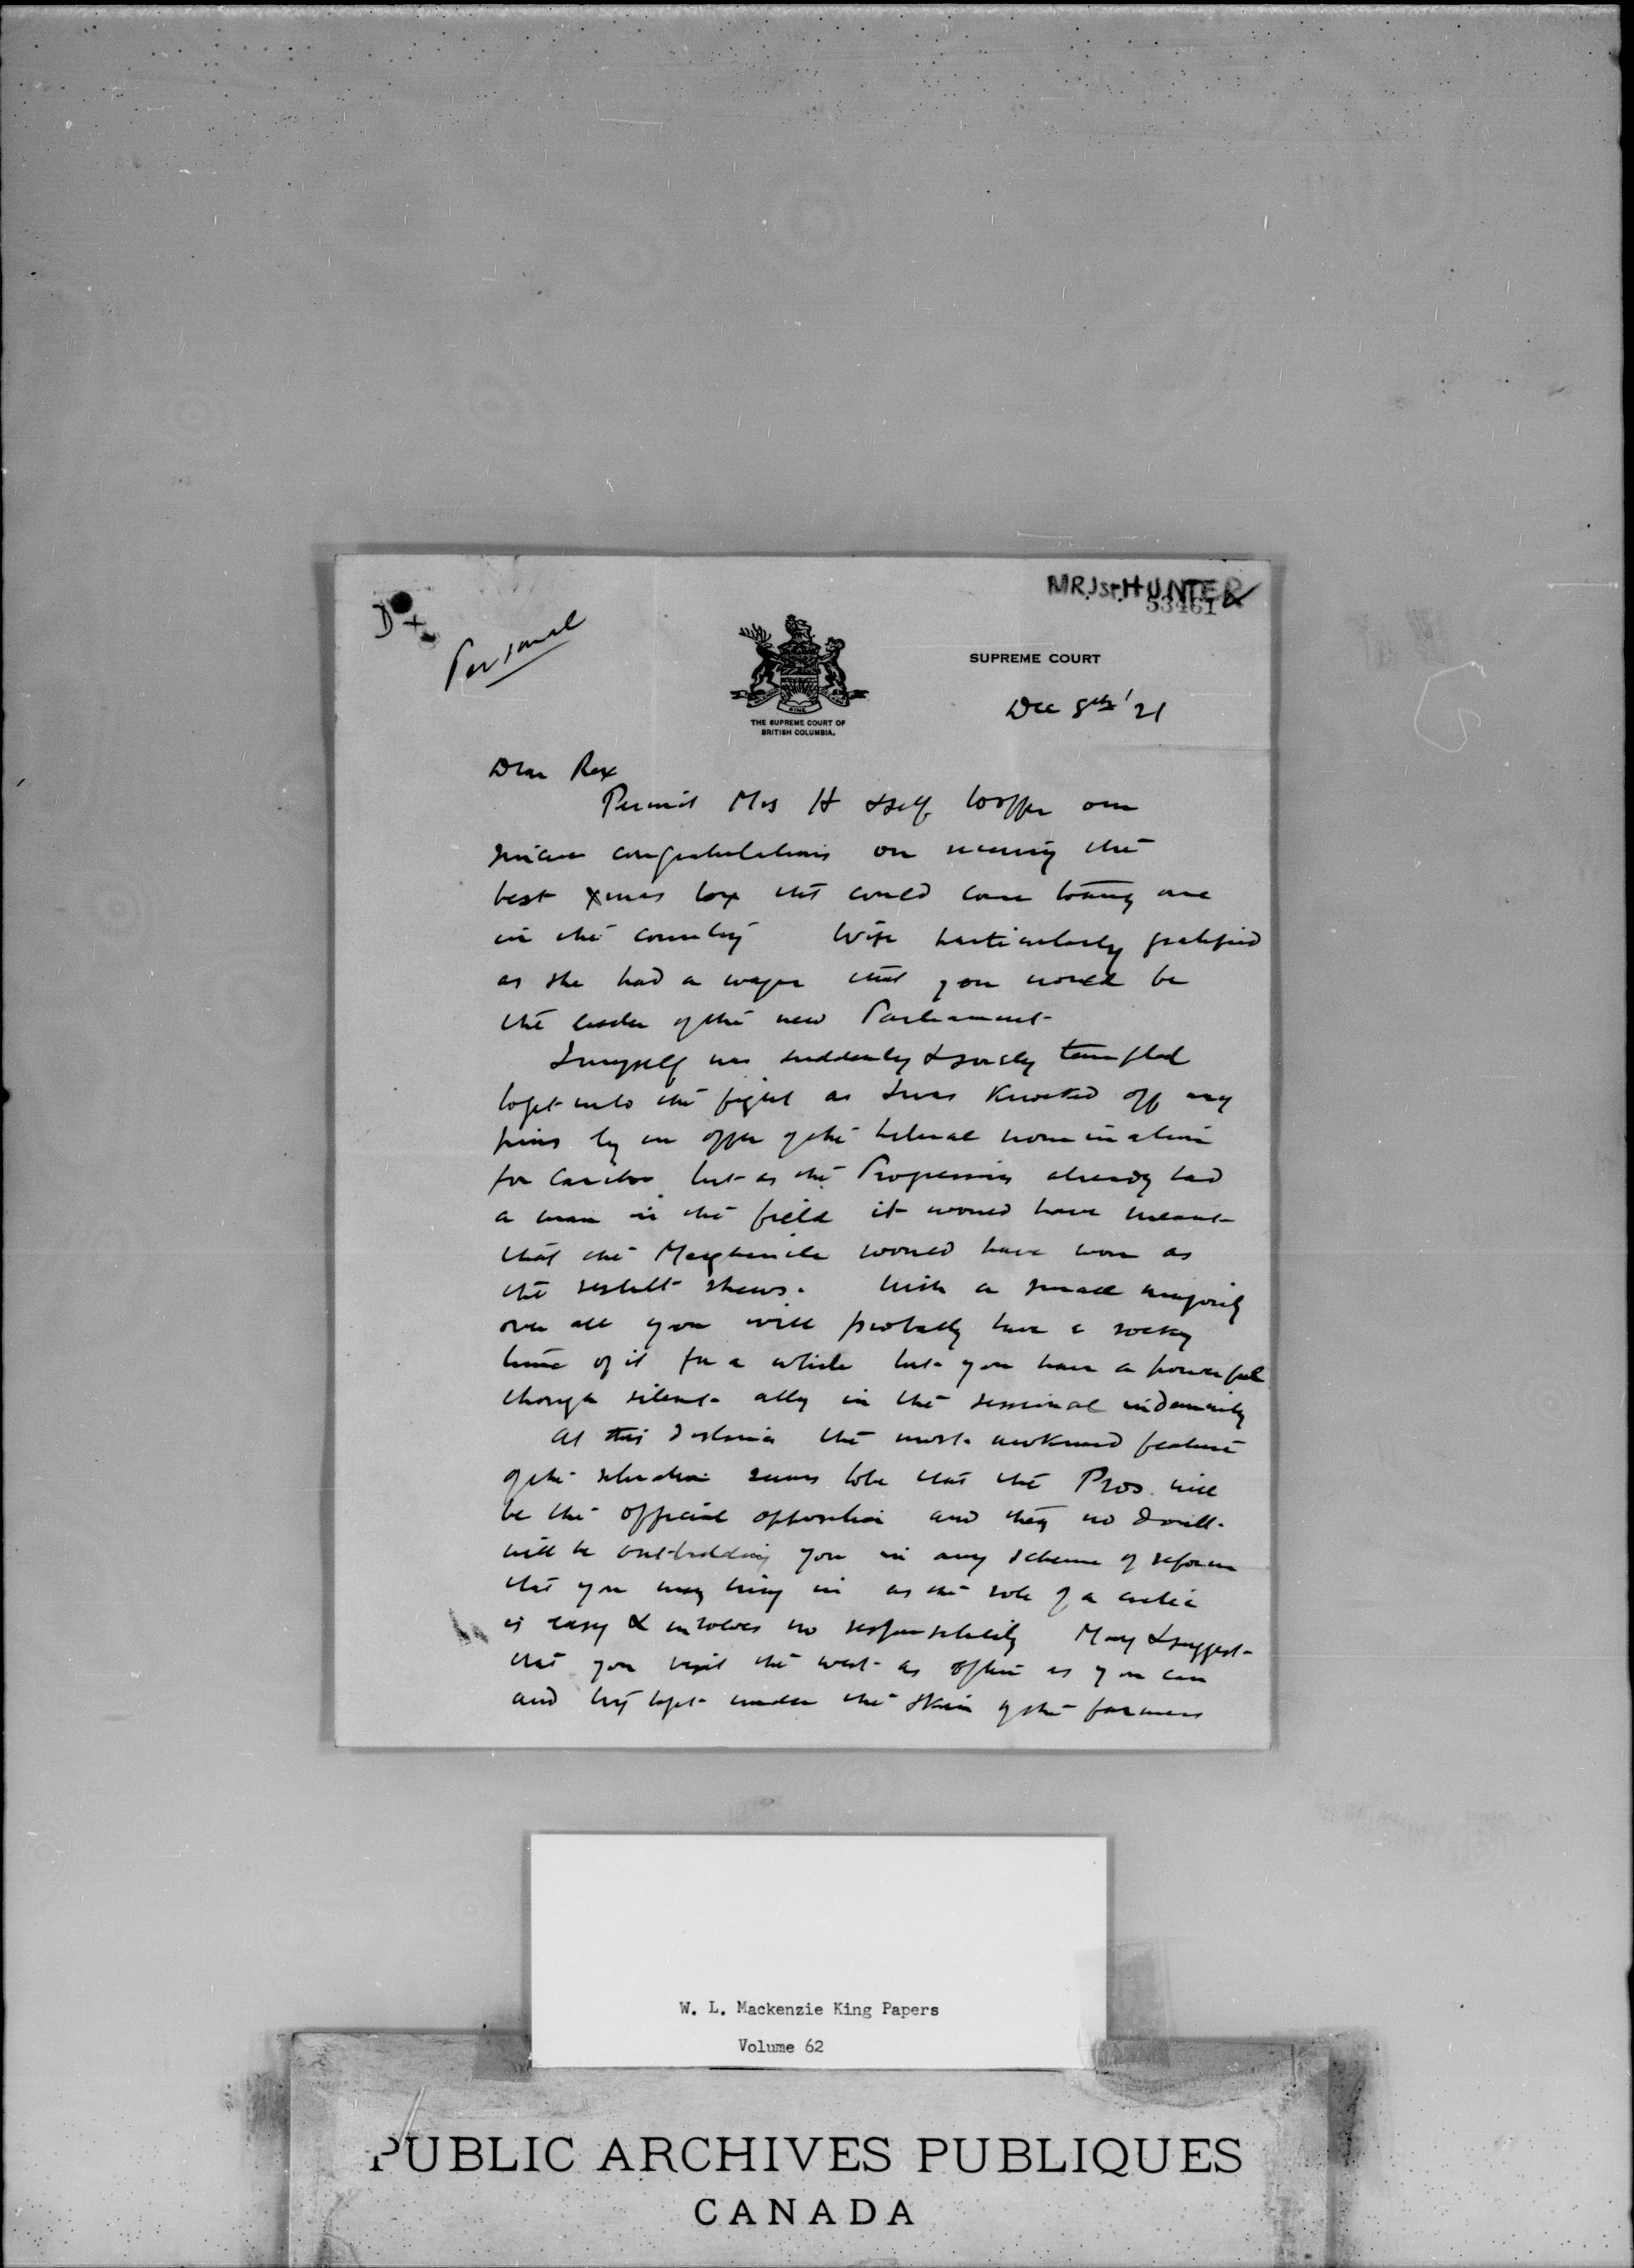 MR. JST. HUNTER
53461
D
Personal
SUPREME COURT
THE SUPREME COURT OF
BRITISH COLUMBIA.
Dec 8th '21
Dear Rex
Permit Mrs H & self to offer our
sincere congratulations on receiving the
best Xmas box that could come to any one
in the country Wife particularly gratified
as she had a wager that you would be
the leader of the new Parliament
I myself was suddenly & sorely tempted
to get into the fight as I was knocked off my
pins by an offer of the Liberal nomination
for Cariboo but as the Progressives already had
a man in the field it would have meant
that the Meighenite would have won as
the result shews. With a small majority
over all you will probably have a rocky
time of it for a while but you have a powerful
though silent ally in the sessional indemnity
At this distance the most awkward feature
of the situation seems to be that the Pros. will
be the official opposition and they no doubt
will be outbidding you in any scheme of reform
that you may bring in as the role of a critic
is easy & involves no responsibility May I suggest
that you visit the west as often as you can
and try to get under the skin of the farmers
W. L. Mackenzie King Papers
Volume 62
PUBLIC ARCHIVES PUBLIQUES
CANADA